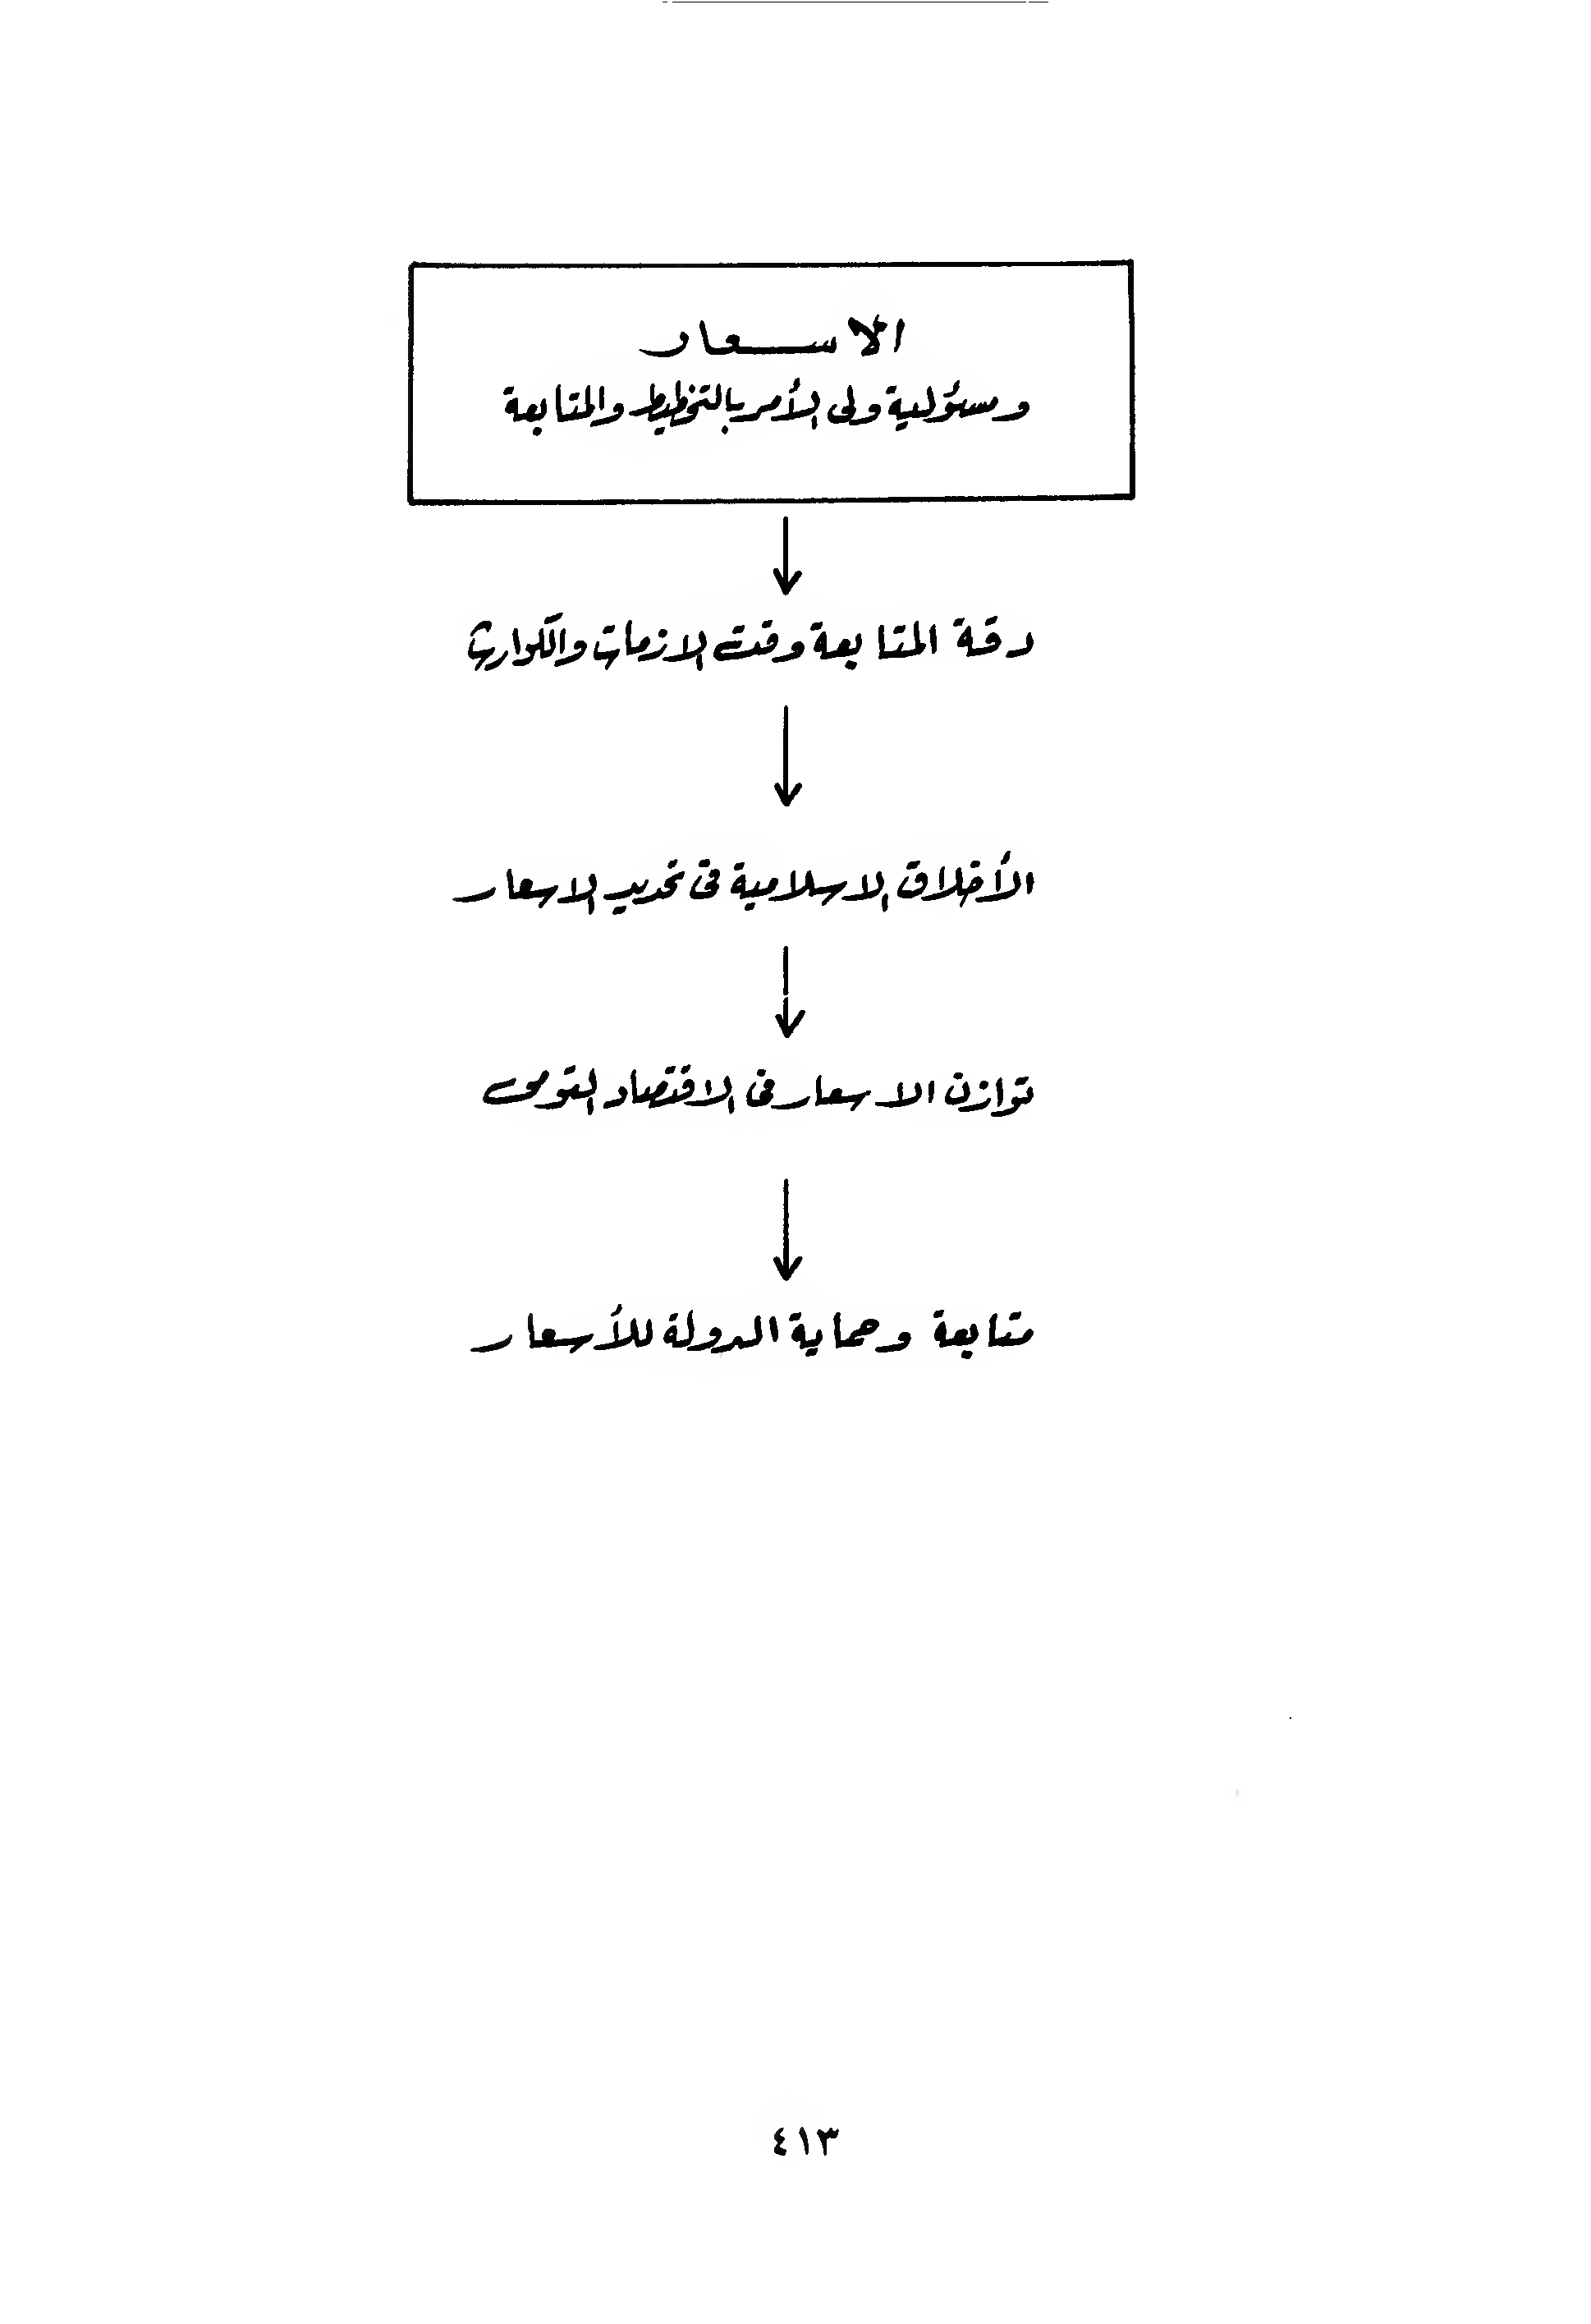 الاسعار
ومسئولية ولى الأمر بالتخطيط والمتابعة
دقة المتابعة وقت الازمات والكوارث
الأخلاق الاسلامية فى تحديد الاسعار
توازن الاسعار فى الاقتصاد القومى
متابعة وحماية الدولة للأسعار
٤١٣